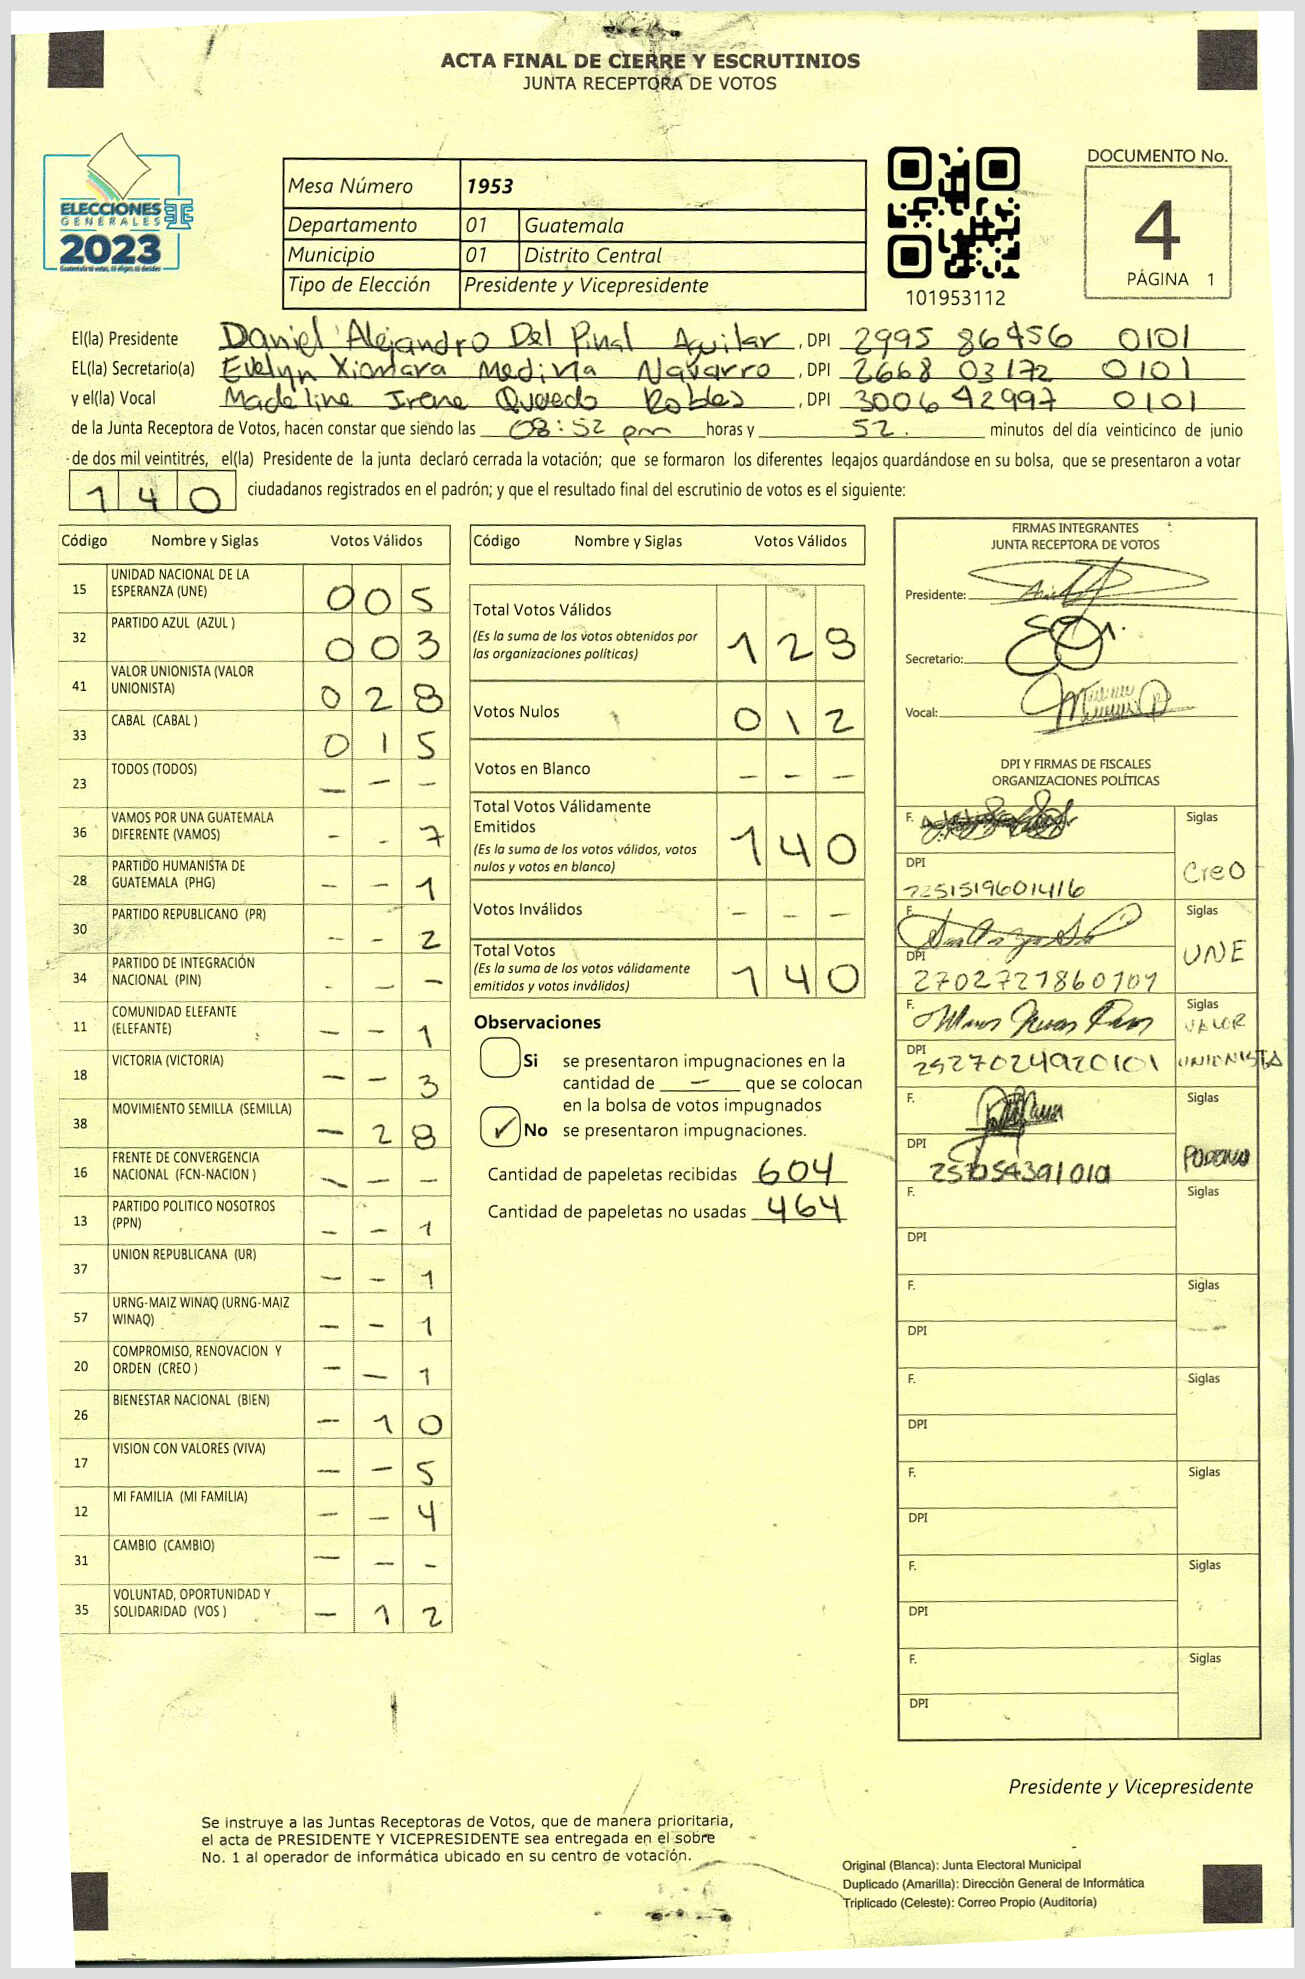 ACTA FINAL DE CIERRE Y ESCRUTINIOS
JUNTA RECEPTORA DE VOTOS
ELECCIONES
GENERALES
2023
Mesa Número 1953
Departamento 01 Guatemala
Municipio 01 Distrito Central
Tipo de Elección Presidente y Vicepresidente
101953112
DOCUMENTO No.
4
PÁGINA 1
El(la) Presidente Daniel Alejandro Del Pinal Aguilar, DPI 2995 86456 0101
EL(la) Secretario(a) Evelyn Xiomara Medina Navarro, DPI 2668 03172 0101
y el(la) Vocal Madeline Irene Quevedo Robles, DPI 3006 42997 0101
de la Junta Receptora de Votos, hacen constar que siendo las 08:52 pm horas y 52. minutos del día veinticinco de junio
de dos mil veintitrés, el(la) Presidente de la junta declaró cerrada la votación; que se formaron los diferentes legajos guardándose en su bolsa, que se presentaron a votar
140 ciudadanos registrados en el padrón; y que el resultado final del escrutinio de votos es el siguiente:
Código Nombre y Siglas Votos Válidos
15 UNIDAD NACIONAL DE LA ESPERANZA (UNE) 005
32 PARTIDO AZUL (AZUL ) 003
41 VALOR UNIONISTA (VALOR UNIONISTA) 028
33 CABAL (CABAL ) 015
23 TODOS (TODOS) - - -
36 VAMOS POR UNA GUATEMALA DIFERENTE (VAMOS) - - 7
28 PARTIDO HUMANISTA DE GUATEMALA (PHG) - - 1
30 PARTIDO REPUBLICANO (PR) - - 2
34 PARTIDO DE INTEGRACIÓN NACIONAL (PIN) - - -
11 COMUNIDAD ELEFANTE (ELEFANTE) - - 1
18 VICTORIA (VICTORIA) - - 3
38 MOVIMIENTO SEMILLA (SEMILLA) - 28
16 FRENTE DE CONVERGENCIA NACIONAL (FCN-NACION ) - - -
13 PARTIDO POLITICO NOSOTROS (PPN) - - 1
37 UNION REPUBLICANA (UR) - - 1
57 URNG-MAIZ WINAQ (URNG-MAIZ WINAQ) - - 1
20 COMPROMISO, RENOVACION Y ORDEN (CREO ) - - 1
26 BIENESTAR NACIONAL (BIEN) - 10
17 VISION CON VALORES (VIVA) - - 5
12 MI FAMILIA (MI FAMILIA) - - 4
31 CAMBIO (CAMBIO) - - -
35 VOLUNTAD, OPORTUNIDAD Y SOLIDARIDAD (VOS ) - 12
Código Nombre y Siglas Votos Válidos
Total Votos Válidos
(Es la suma de los votos obtenidos por
las organizaciones políticas) 128
Votos Nulos 012
Votos en Blanco - - -
Total Votos Válidamente
Emitidos
(Es la suma de los votos válidos, votos
nulos y votos en blanco) 140
Votos Inválidos - - -
Total Votos
(Es la suma de los votos válidamente
emitidos y votos inválidos) 140
Observaciones
Si se presentaron impugnaciones en la
cantidad de — que se colocan
en la bolsa de votos impugnados
✓ No se presentaron impugnaciones.
Cantidad de papeletas recibidas 604
Cantidad de papeletas no usadas 464
FIRMAS INTEGRANTES
JUNTA RECEPTORA DE VOTOS
Presidente:
Secretario:
Vocal:
DPI Y FIRMAS DE FISCALES
ORGANIZACIONES POLÍTICAS
F. Siglas
DPI CREO
F. Siglas
DPI UNE
2702727860101
F. Siglas
VALOR
DPI UNIONISTA
2527024920101
F. Siglas
DPI
F. Siglas
DPI
F. Siglas
DPI
F. Siglas
DPI
F. Siglas
DPI
F. Siglas
DPI
F. Siglas
DPI
Presidente y Vicepresidente
Se instruye a las Juntas Receptoras de Votos, que de manera prioritaria,
el acta de PRESIDENTE Y VICEPRESIDENTE sea entregada en el sobre
No. 1 al operador de informática ubicado en su centro de votación.
Original (Blanca): Junta Electoral Municipal
Duplicado (Amarilla): Dirección General de Informática
Triplicado (Celeste): Correo Propio (Auditoría)